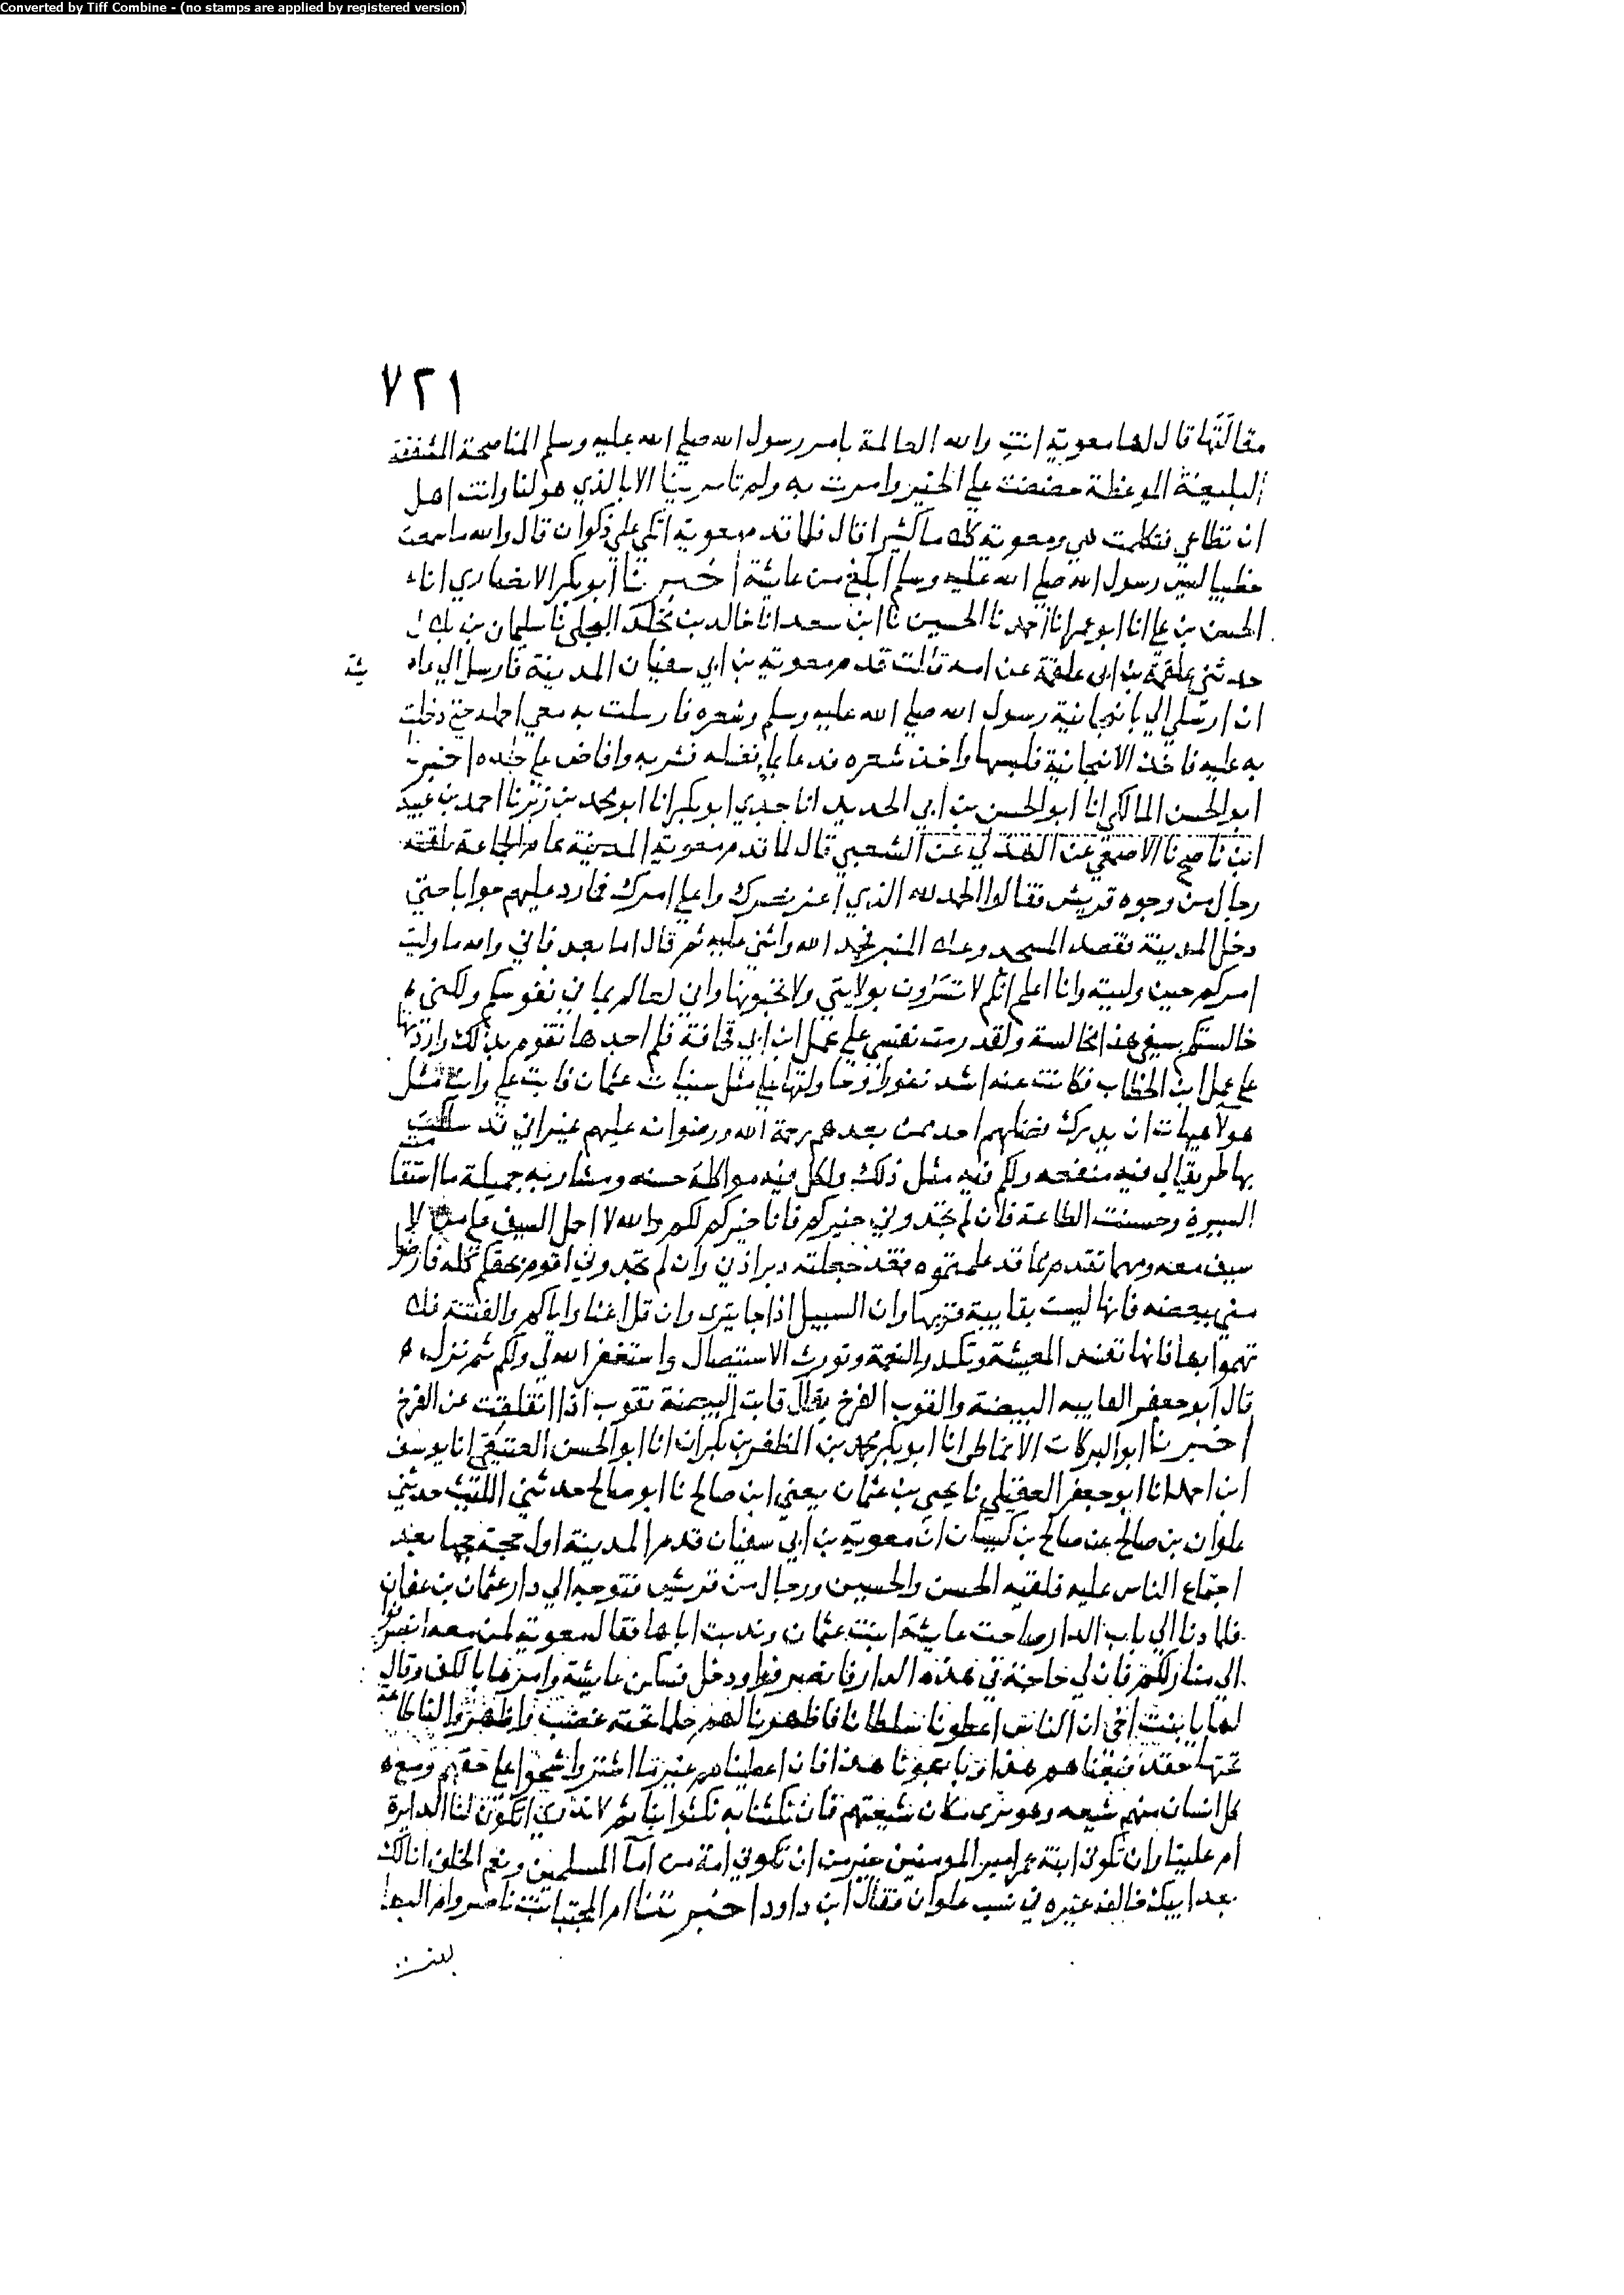 Converted by Tiff Combine - (no stamps are applied by registered version)
٧٢١
مقالتها قال لها معوية انت والله العالمة بامر رسول الله صلى الله عليه وسلم المناصحة المشفقة
البليغة الموعظة حضضت علي الخير وامرت به ولم تامرينا الا بالذي هو لنا وانت اهل
ان تطاعي فتكلمت هي ومعوية كلاما كثيرا قال فلما قدم معوية اتكي علي ذكوان قال والله ما سمعت
خطيبا ليس رسول الله صلي الله عليه وسلم ابلغ من عايشة اخبرنا ابو بكر الانصاري انا
الحسن بن علي انا ابو عمر انا احمد نا الحسين نا ابن سعد انا خالد بن مخلد البجلي نا سليمان بن بلال
حدثني علقمة بن ابي علقمة عن امه قالت قدم معوية بن ابي سفيان المدينة فارسل الي عا
يشة
ان ارسلي الي بانبجانية رسول الله صلي الله عليه وسلم وشعره فارسلت به معي احمله حتى دخلت
به عليه فاخذ الانبجانية فلبسها واخذ شعره فدعا بماء فغسله فشربه وافاض علي جلده اخبرنا
ابو الحسن المالكي انا ابو الحسن بن ابي الحديد انا جدي ابو بكر انا ابو محمد بن زبر نا احمد بن عبيد
ابن ناصح نا الاصمعي عن الهذلي عن الشعبي قال لما قدم معوية المدينة عام الجاعة تلقته
رجال من وجوه قريش فقالوا الحمد لله الذي اعز نصرك واعلي امرك فما رد عليهم جوابا حتي
دخل المدينة فقصد المسجد وعلا المنبر فحمد الله واثني عليه ثم قال اما بعد فاني والله ما وليت
امركم حين وليته وانا اعلم انكم لا تسرون بولايتي ولا تحبونها واني لعالم بما في نفوسكم ولكني
خالستكم بسيفي هذا مخالسة ولقد رمت نفسي علي عمل ابن ابي قحافة فلم اجدها تقوم بذلك واردتها
علي عمل ابن الخطاب فكانت عنه اشد نفورا وحاولتها علي مثل سنيات عثمان فابت علي واين مثل
هولا هيهات ان يدرك فضلهم احد ممن بعدهم رحمة الله ورضوانه عليهم غير اني قد سلكت
بها طريقا لي فيه منفعه ولكم فيه مثل ذلك ولكل فيه مواكلة حسنه ومشاربه جميلة ما استقا
السيرة وحسنت الطاعة فان لم تجدوني خيركم فانا خيركم لكم والله لا احمل السيف علي من لا
سيف معه ومهما تقدم مما قد علمتموه فقد جعلته دبر اذني وان لم تجدوني اقوم بحقكم كله فارضوا
مني ببعضه فانها ليست بقايبة قوبها وان السيل اذا جا يترى وان قل اغنا واياكم والفتنة فلا
تهموا بها فانها تفسد المعيشة وتكدر النعمة وتورث الاستيصال واستغفر الله لي ولكم ثم نزل ه
قال ابو جعفر القايبه البيضة والقوب الفرخ يقال قابت البيضة تقوب اذا انفلقت عن الفرخ
اخبرنا ابو البركات الانماطي انا ابو بكر محمد بن المظفر بن بكران انا ابو الحسن العتيقي انا يوسف
ابن احمد انا ابو جعفر العقيلي نا يحيي بن عثمان يعني ابن صالح نا ابو صالح حدثني الليث حدثني
علوان بن صالح عن صالح بن كيسان ان معوية بن ابي سفيان قدم المدينة اول حجة حجها بعد
اجتماع الناس عليه فلقيه الحسن والحسين ورجال من قريش فتوجه الي دار عثمان بن عفان
فلما دنا الي باب الدار صاحت عايشة ابنت عثمان وندبت اباها فقال معوية لمن معه انصرفوا
الي منازلكم فان لي حاجة في هذه الدار فانصرفوا ودخل فسكن عايشة وامرها بالكف وقال
لها يا بنت اخي ان الناس اعطونا سلطانا فاظهرنا لهم حلما تحته غضب واظهروا لنا طاعة
تحتها حقد فبعناهم هذا وباعونا هذا فان اعطيناهم غير ما اشتروا شحوا علي حقهم ومع
كل انسان منهم شيعه وهو يرى مكان شيعتهم فان نكثنا به نكثوا بنا ثم لا ندري اتكون لنا الدايرة
ام علينا وان تكوني ابنة عم امير المومنين خير من ان تكوني امة من آما المسلمين ونعم الخلف انا لك
بعد ابيك خالفه غيره في نسب علوان فقال ابن داود اخبرتنا ام المجتبا بنت ناصر وام البها
بنت